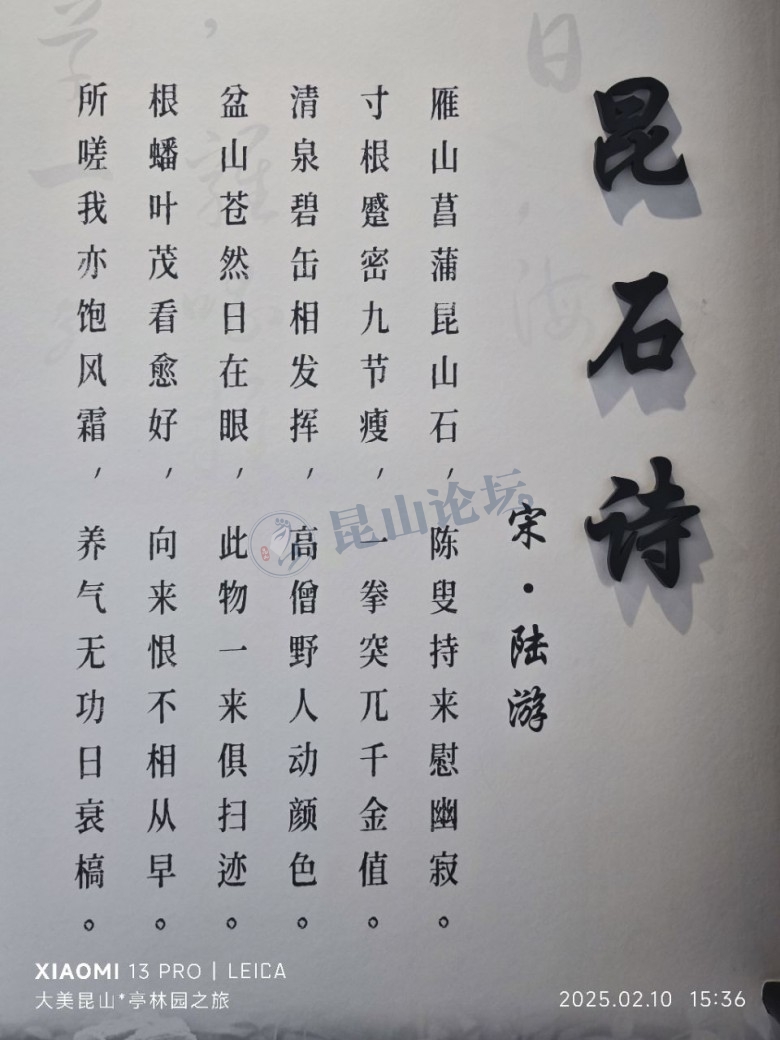 昆石诗
宋·陆游
雁山菖蒲昆山石,陈叟持来慰幽寂。
寸根蹙密九节瘦,一拳突兀千金值。
清泉碧缶相发挥,高僧野人动颜色。
盆山苍然日在眼,此物一来俱扫迹。
根蟠叶茂看愈好,向来恨不相从早。
所嗟我亦饱风霜,养气无功日衰槁。
昆山论坛
XIAOMI 13 PRO | LEICA
大美昆山*亭林园之旅
2025.02.10 15:36